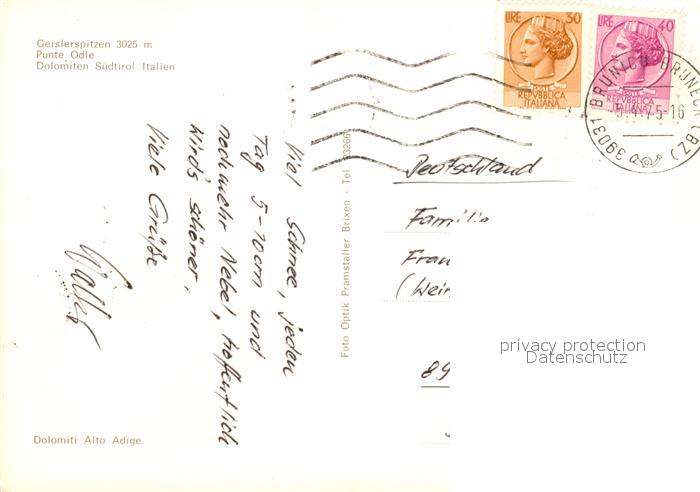 Geislerspitzen 3025 m
Punte Odle
Dolomiten Südtirol Italien
LIRE 30
POSTE
REPVBBLICA
ITALIANA
LIRE 40
POSTE
REPVBBLICA
ITALIANA
39031 BRUNICO BRUNECK (BZ)
Viel Schnee, jeden
Tag 5-10cm und
noch mehr Nebel, hoffentlich
wird's schöner.
Viele Grüße
Foto Optik Pramstaller Brixen - Tel. 23266
Deutschland
Familie
Fran
(Wein
89
privacy protection
Datenschutz
Dolomiti Alto Adige